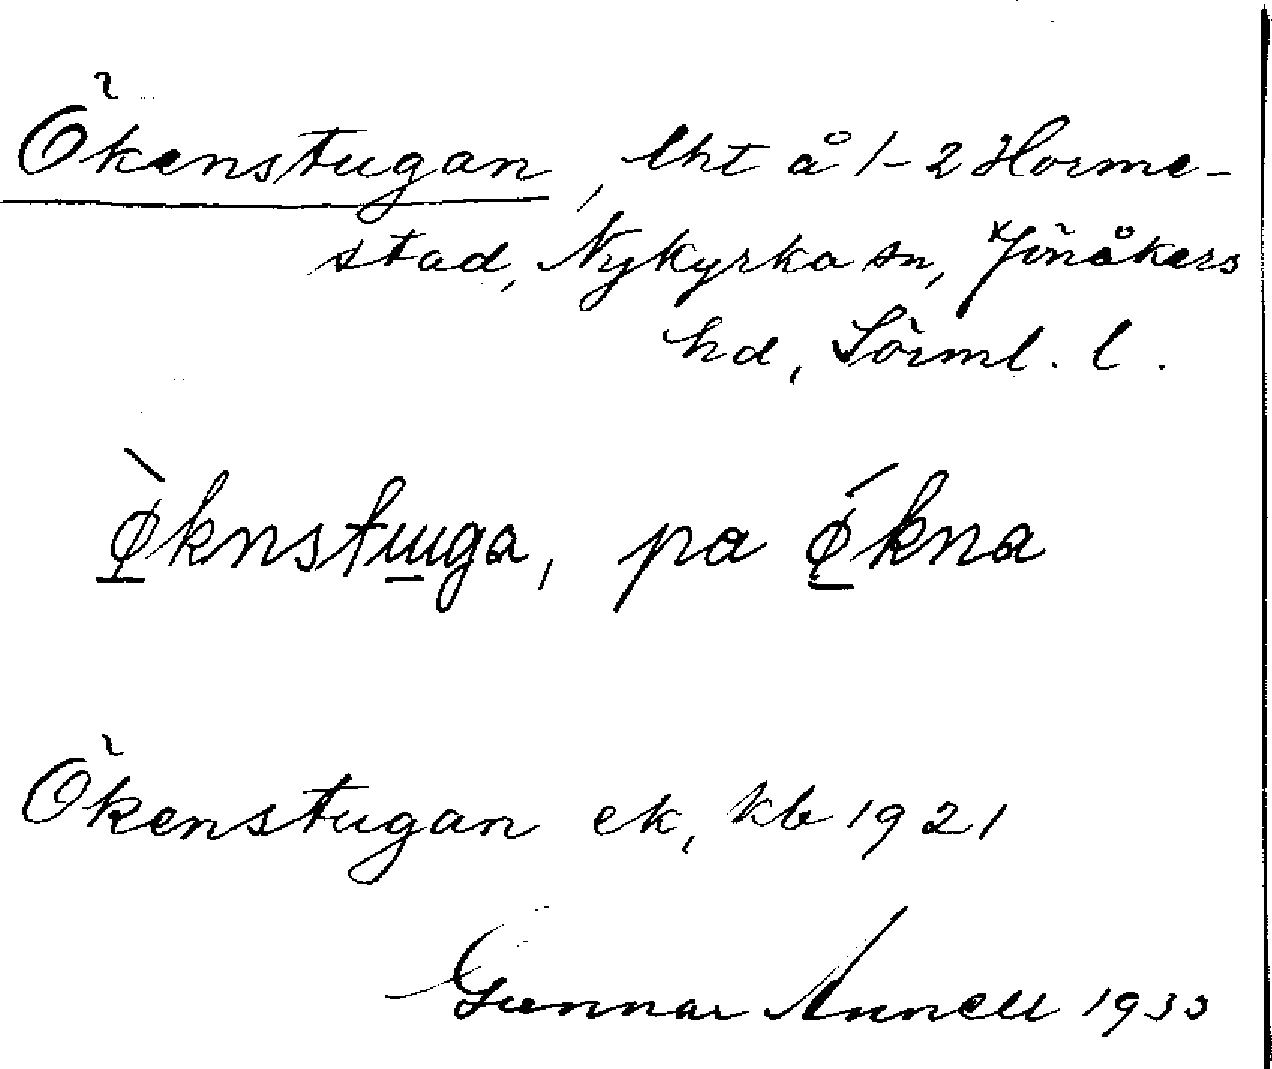 Ökenstugan, lht å 1-2 Horme-
stad, Nykyrka sn, Jönåkers
hd, Sörml. l.
ø̀knstɯga, pa ǿkna
Ökenstugan ek, kb 1921
Gunnar Annell 1933